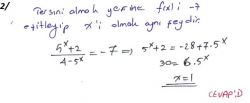 2/ Tersini almak yerine f(x)'i -7
eşitleyip x'i almak aynı şeydir.
(5^x+2)/(4-5^x) = -7 ⇒ 5^x+2 = -28+7.5^x
30 = 6.5^x
x=1
CEVAP D